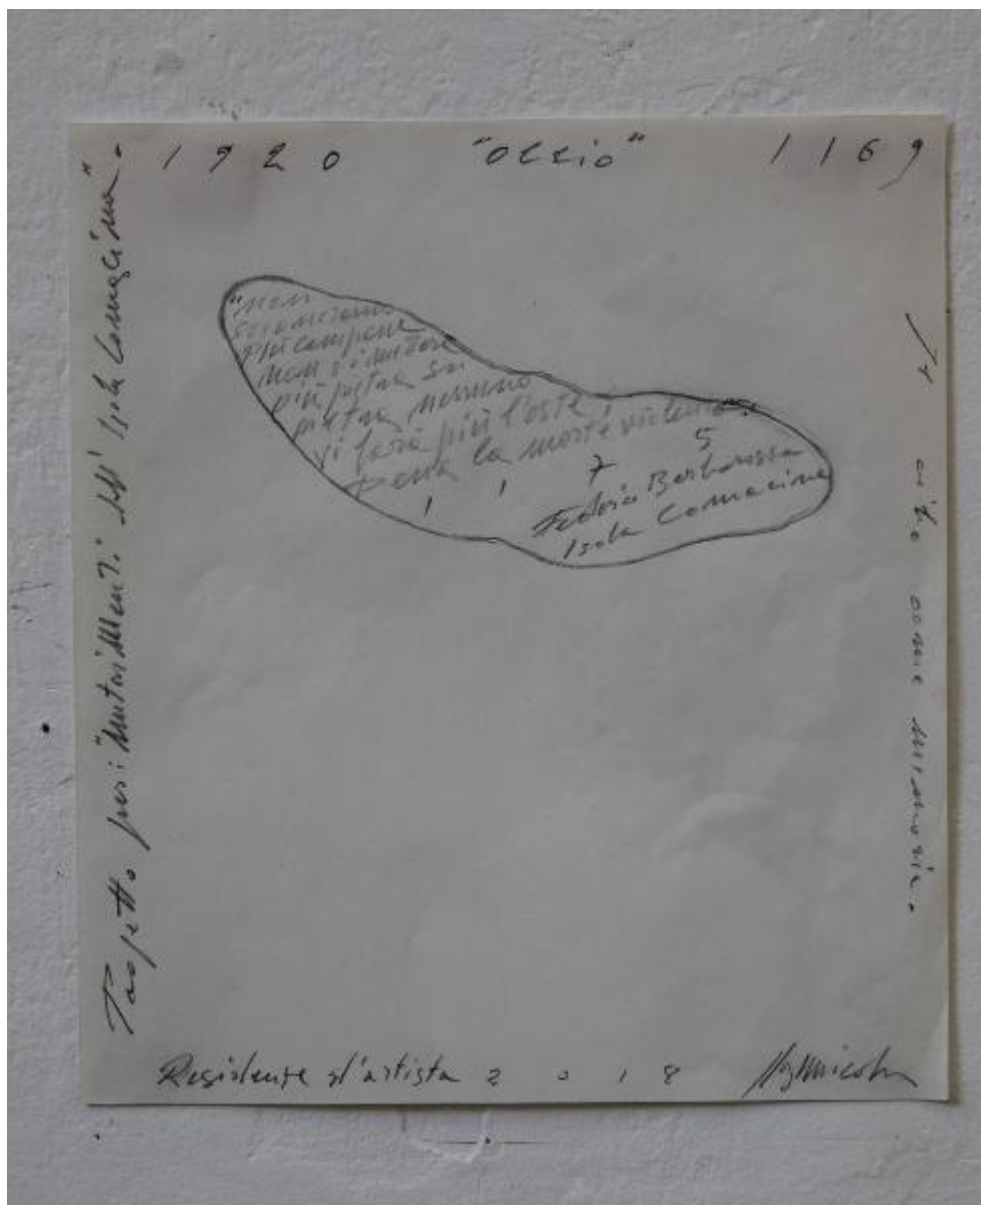 1920 "OZZIO" 1169
"non
suoneranno
più campane
non si metterà
più pietra su
pietra nessuno
vi farà più l'oste
pena la morte violenta".
1 1 7 5
Federico Barbarossa
Isola Comacina
Progetto per i "Mutamenti dell'Isola Comacina".
come memoria.
Residenze d'artista 2018